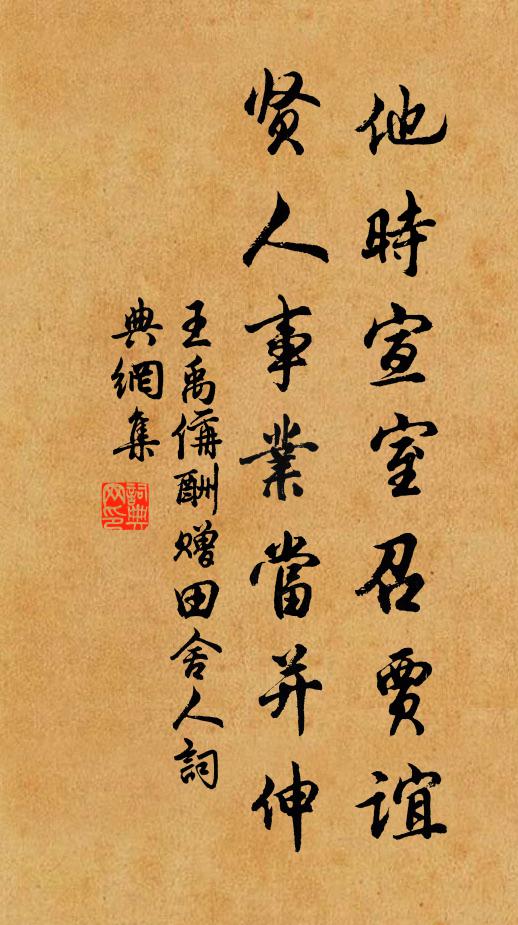 他時宣室召賈誼
贤人事業當并伸
王禹偁酬赠田舍人詞
典網集
詞典
网印